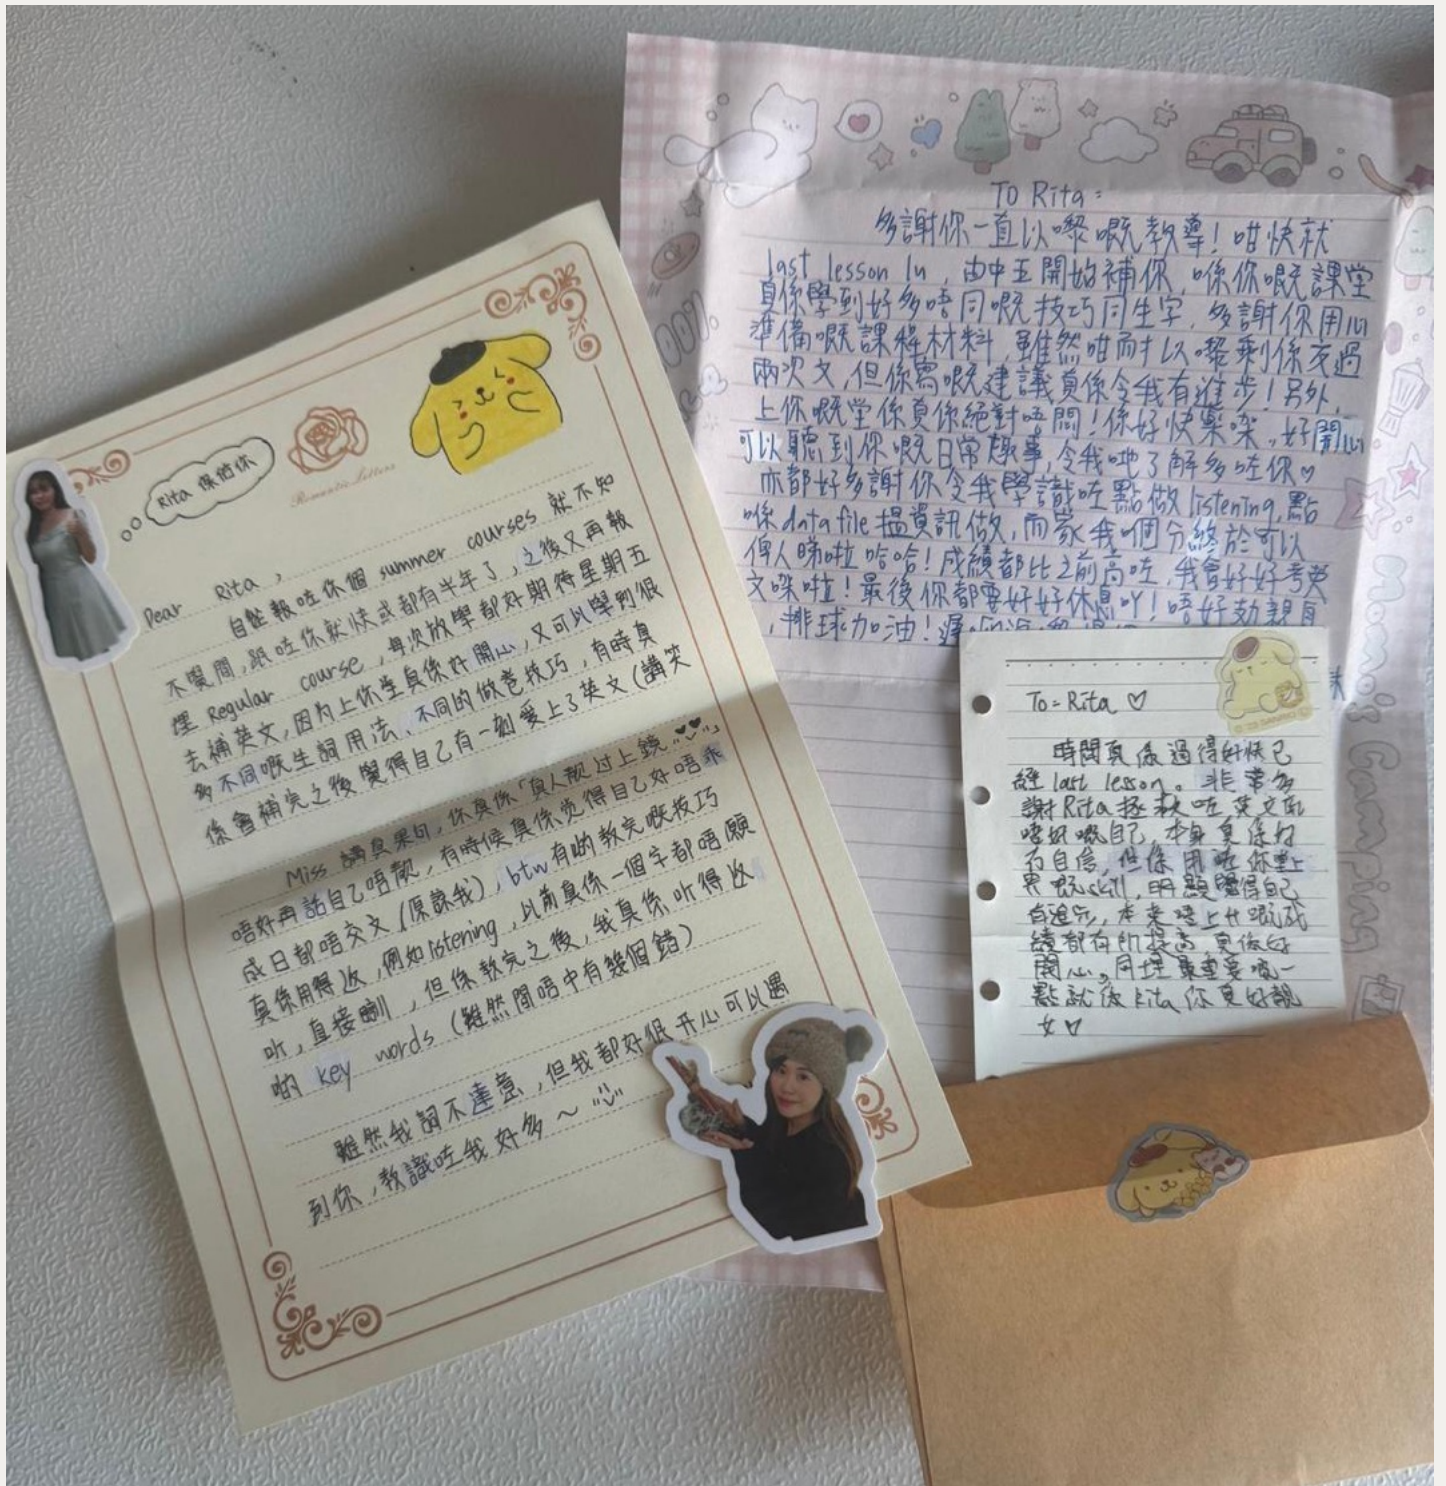 Rita 保佑你
Romantic Letters
Dear Rita，
自從報咗你個 summer courses 就不知
不覺間，跟咗你就快或都有半年了，之後又再報
埋 Regular course，每次放學都好期待星期五
去補英文，因为上你堂真係好開心，又可以學到很
多不同嘅生詞用法、不同的做卷技巧，有時真
係會補完之後覺得自己有一刻愛上了英文（講笑
Miss 講真某句，你真係「真人靚过上鏡」
唔好再話自己唔靚，有時候真係覚得自己好唔乖
成日都唔交文（原諒我），btw 有啲教完嘅技巧
真係用得返，例如 listening，以前真係一個字都唔願
听，直接瞓，但係教完之後，我真係听得返
啲 key words（雖然間唔中有幾個錯）
雖然我詞不達意，但我都好很开心可以遇
到你，教識咗我好多～
TO Rita：
多謝你一直以嚟嘅教導！咁快就
last lesson lu，由中五開始補你，喺你嘅課堂
真係學到好多唔同嘅技巧同生字，多謝你用心
準備嘅課程材料，雖然咁耐以嚟剩係交過
兩次文，但係寫嘅建議真係令我有進步！另外，
上你嘅堂係真係絕對唔悶！係好快樂㗎，好開心
可以聽到你嘅日常趣事，令我哋了解多咗你♡
亦都好多謝你令我學識咗點做 listening，點
喺 data file 搵資訊做，而家我個分終於可以
俾人睇啦哈哈！成績都比之前高咗，我會好好考英
文㗎啦！最後你都要好好休息吖！唔好勁親身
，排球加油！
To = Rita ♡
時間真係過得好快已
經 last lesson。非常多
謝 Rita 拯救咗英文咁
唔好嘅自己，本身真係好
冇自信，但係用咗你教
嘅 skill，明顯覺得自己
有進步，本來唔上廿嘅成
績都有所提高，真係好
開心。同埋最重要嘅一
點就係 Rita 你真好靚
女♡
Momo's Camping